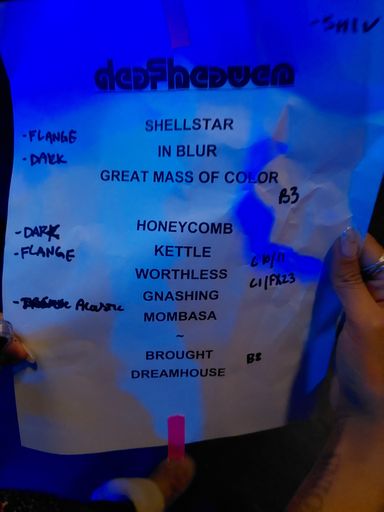 - SHIV
deafheaven
SHELLSTAR
- FLANGE
IN BLUR
- DARK
GREAT MASS OF COLOR
B3
HONEYCOMB
- DARK
KETTLE
- FLANGE
WORTHLESS
GNASHING
C1/FX23
- Acoustic
MOMBASA
~
BROUGHT
B8
DREAMHOUSE